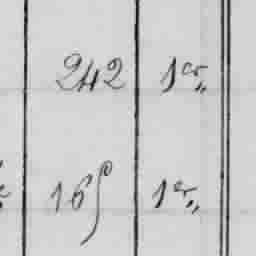 242 1er„
165 1er„